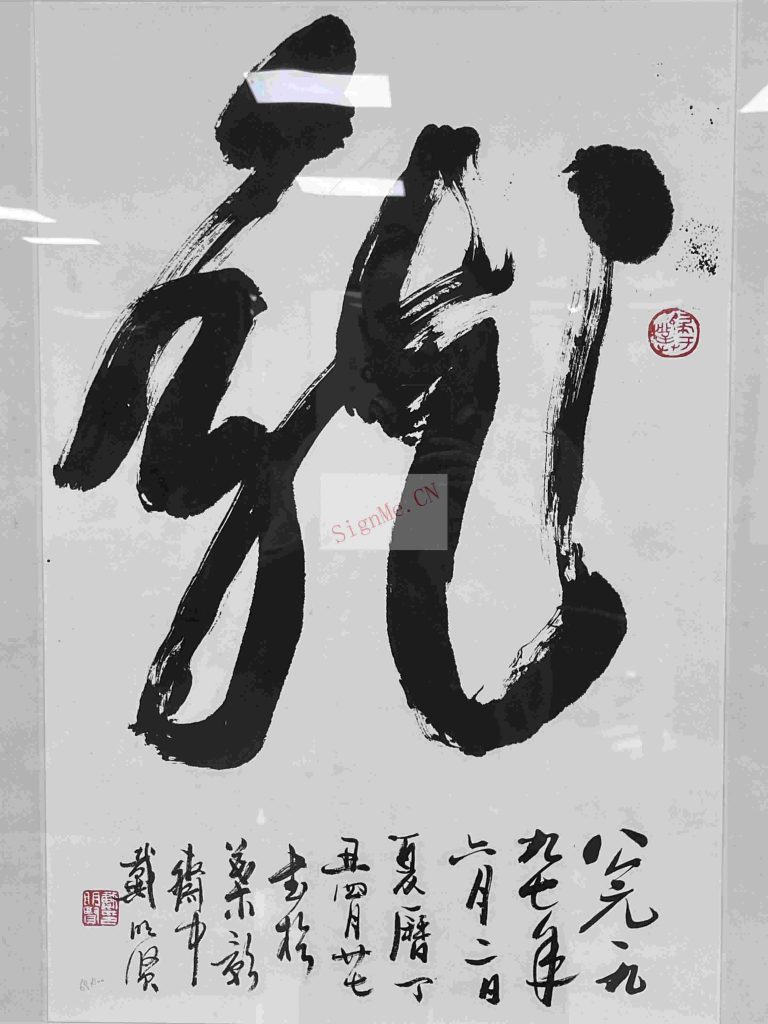 龍
公元一九
九七年
六月二日
夏曆丁
丑四月廿七
书於
齋中
戴明贤
SignMe.CN